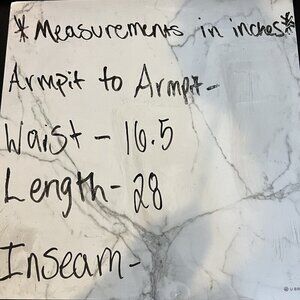 *Measurements in inches*
Armpit to Armpit-
Waist - 16.5
Length- 28
Inseam-